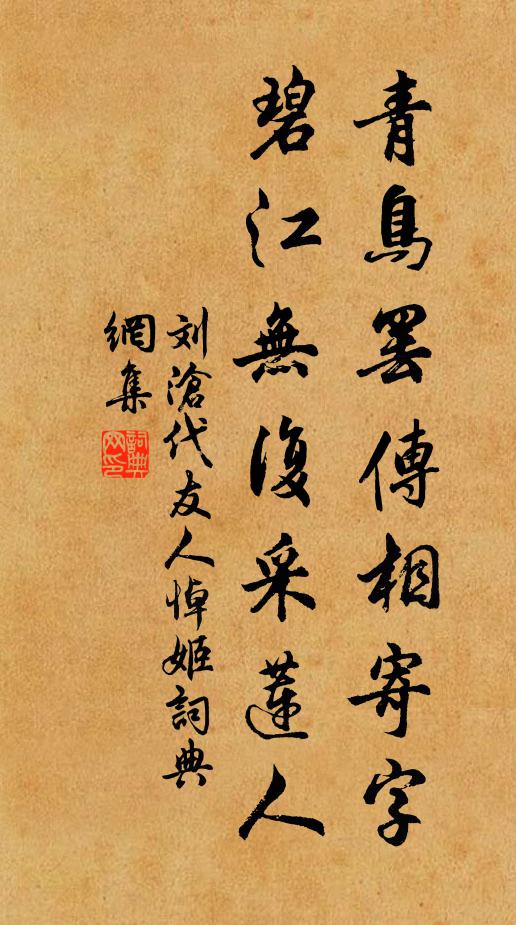 青鳥罢傳相寄字
碧江無復采蓮人
刘滄代友人悼姬詞典
網集
詞典
网印